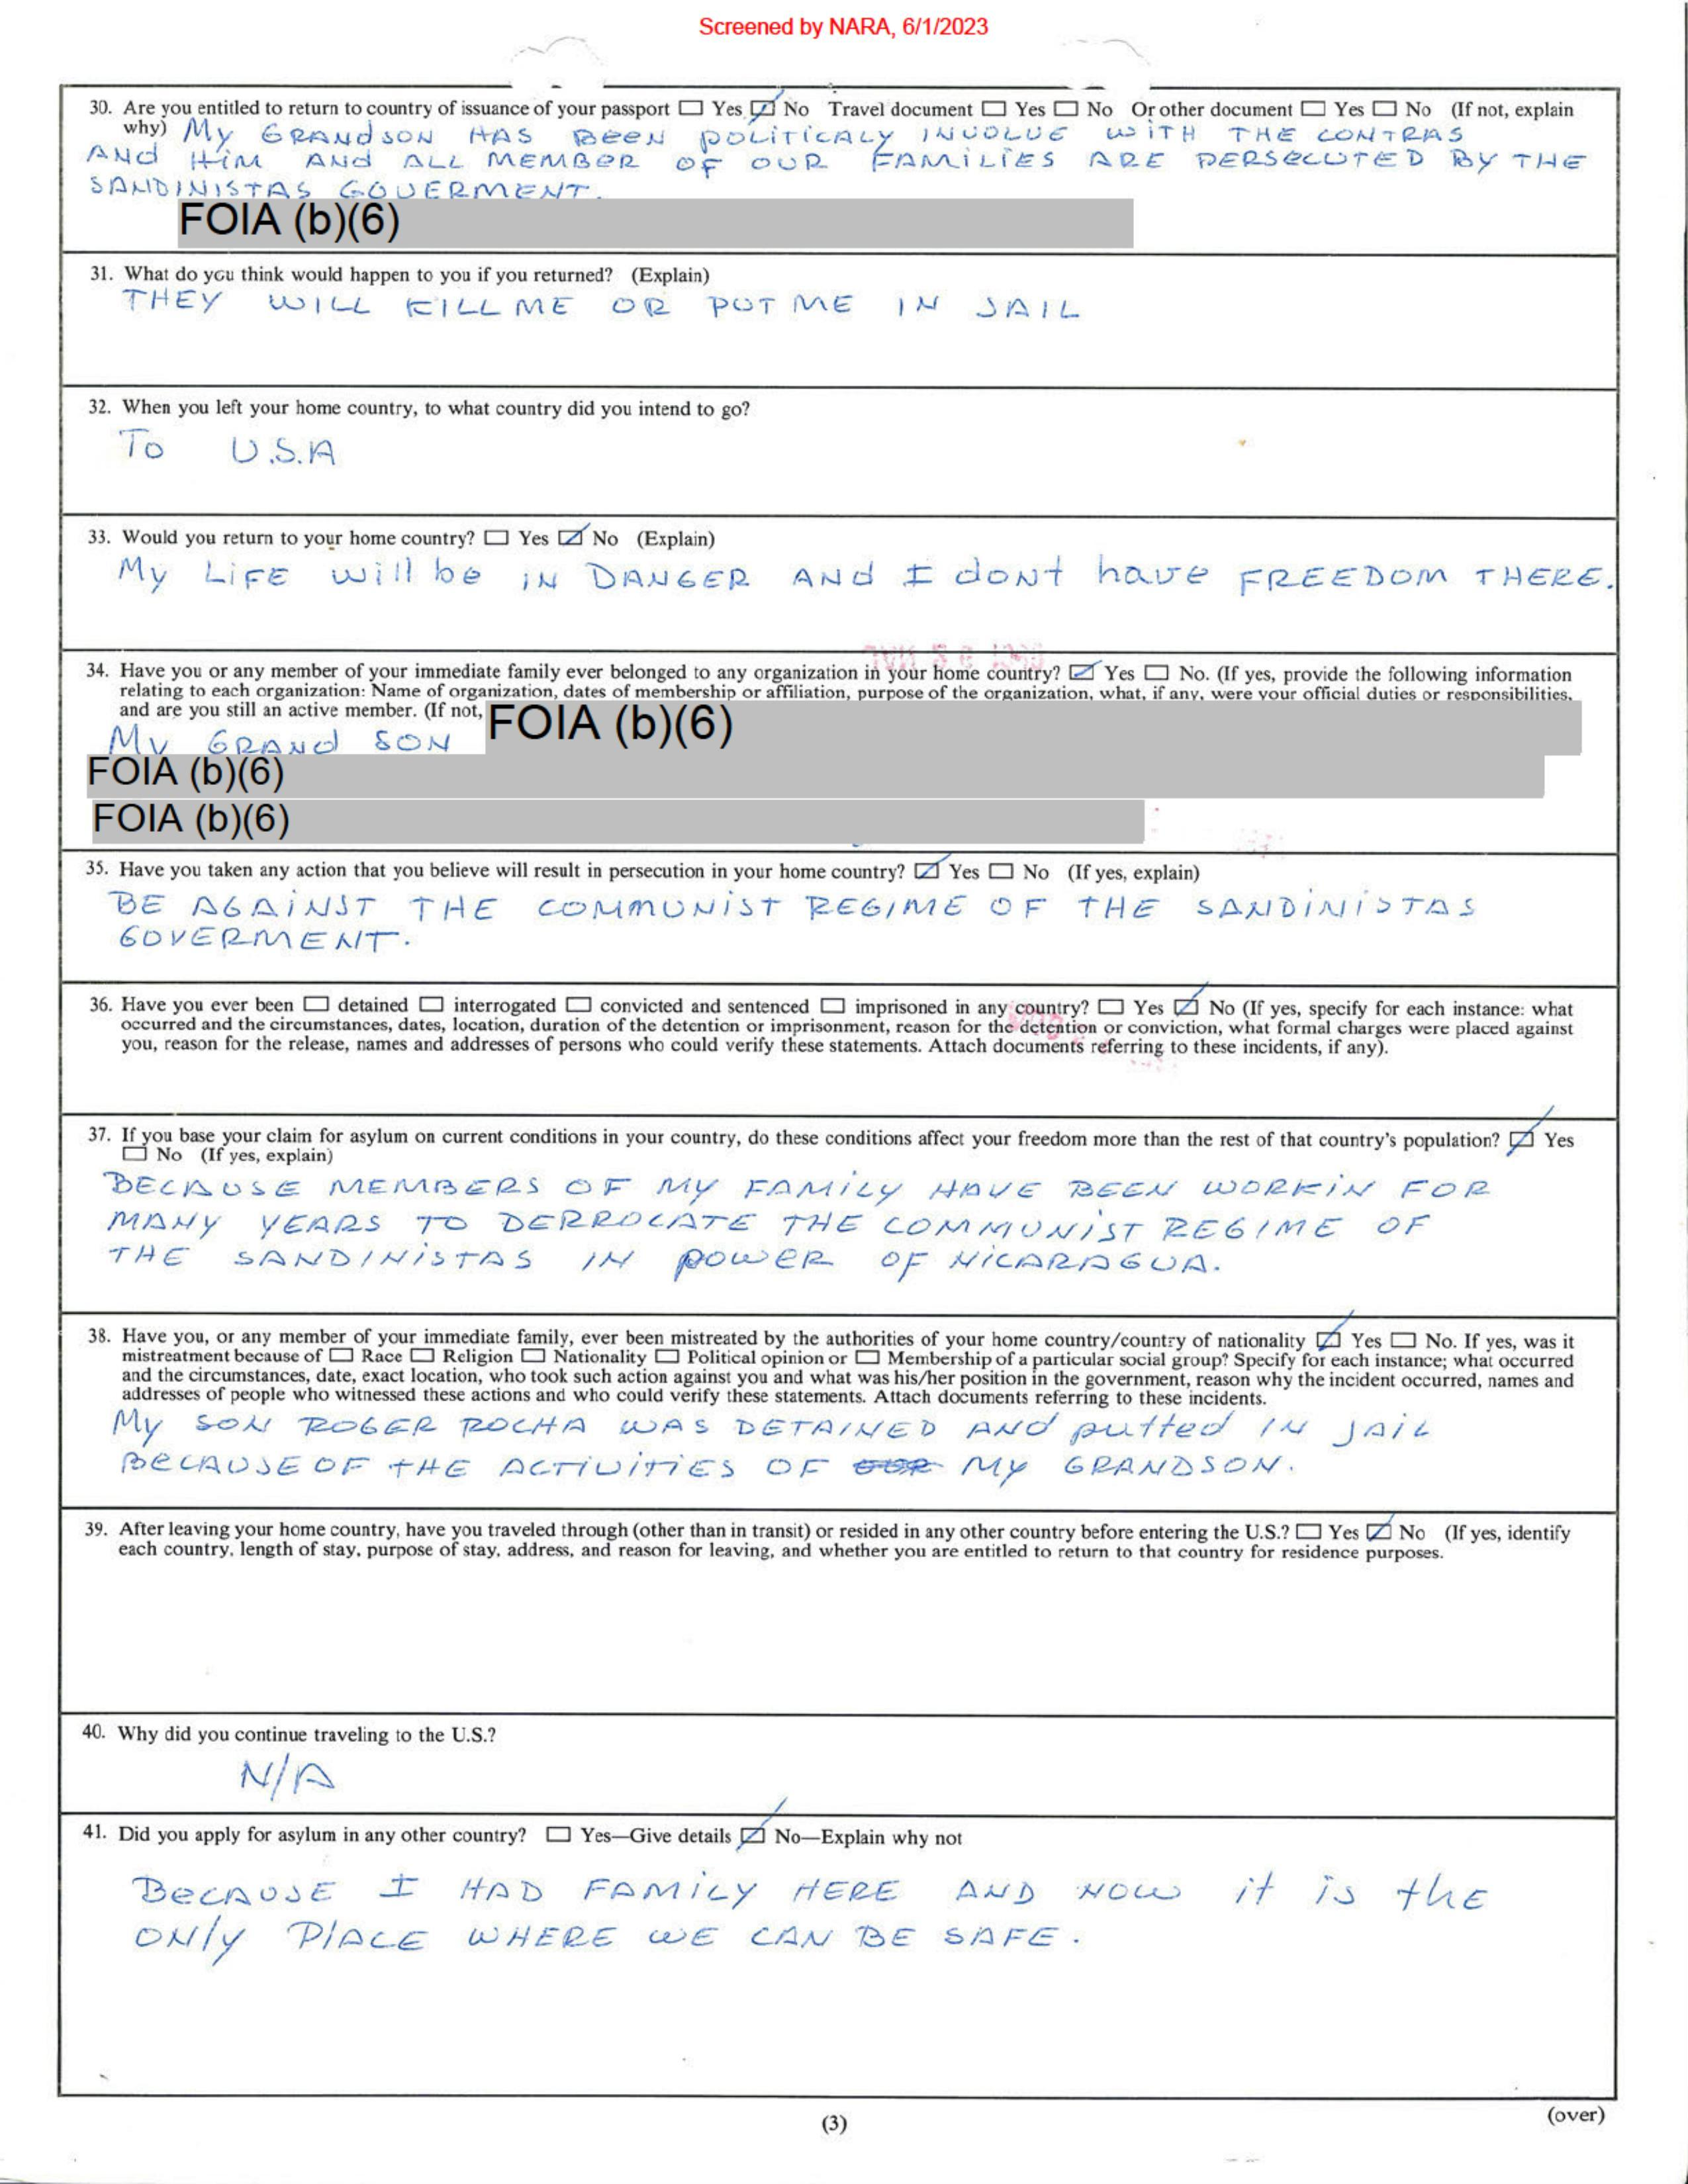 Screened by NARA, 6/1/2023
30. Are you entitled to return to country of issuance of your passport ☐ Yes ☑ No Travel document ☐ Yes ☐ No Or other document ☐ Yes ☐ No (If not, explain
why) My GRANdSON HAS BEEN POLITICALY INVOLVE WITH THE CONTRAS
ANd HIM ANd ALL MEMBER OF OUR FAMILIES ARE PERSECUTED BY THE
SANDINISTAS GOVERMENT.
FOIA (b)(6)
31. What do you think would happen to you if you returned? (Explain)
THEY WILL KILL ME OR PUT ME IN JAIL
32. When you left your home country, to what country did you intend to go?
To U.S.A
33. Would you return to your home country? ☐ Yes ☑ No (Explain)
My LiFE will be IN DANGER ANd I dONt have FREEDOM THERE.
34. Have you or any member of your immediate family ever belonged to any organization in your home country? ☑ Yes ☐ No. (If yes, provide the following information
relating to each organization: Name of organization, dates of membership or affiliation, purpose of the organization, what, if any, were your official duties or responsibilities,
and are you still an active member. (If not,
FOIA (b)(6)
My GRANd SON
FOIA (b)(6)
FOIA (b)(6)
35. Have you taken any action that you believe will result in persecution in your home country? ☑ Yes ☐ No (If yes, explain)
BE AGAINST THE COMMUNIST REGIME OF THE SANDINISTAS
GOVERMENT.
36. Have you ever been ☐ detained ☐ interrogated ☐ convicted and sentenced ☐ imprisoned in any country? ☐ Yes ☑ No (If yes, specify for each instance: what
occurred and the circumstances, dates, location, duration of the detention or imprisonment, reason for the detention or conviction, what formal charges were placed against
you, reason for the release, names and addresses of persons who could verify these statements. Attach documents referring to these incidents, if any).
37. If you base your claim for asylum on current conditions in your country, do these conditions affect your freedom more than the rest of that country's population? ☑ Yes
☐ No (If yes, explain)
BECAUSE MEMBERS OF MY FAMILY HAVE BEEN WORKIN FOR
MANY YEARS TO DERROCATE THE COMMUNIST REGIME OF
THE SANDINISTAS IN POWER OF NICARAGUA.
38. Have you, or any member of your immediate family, ever been mistreated by the authorities of your home country/country of nationality ☑ Yes ☐ No. If yes, was it
mistreatment because of ☐ Race ☐ Religion ☐ Nationality ☐ Political opinion or ☐ Membership of a particular social group? Specify for each instance; what occurred
and the circumstances, date, exact location, who took such action against you and what was his/her position in the government, reason why the incident occurred, names and
addresses of people who witnessed these actions and who could verify these statements. Attach documents referring to these incidents.
My SON ROGER ROCHA WAS DETAINED ANd putted IN JAIL
BECAUSE OF tHE ACTIVITIES OF MY GRANDSON.
39. After leaving your home country, have you traveled through (other than in transit) or resided in any other country before entering the U.S.? ☐ Yes ☑ No (If yes, identify
each country, length of stay, purpose of stay, address, and reason for leaving, and whether you are entitled to return to that country for residence purposes.
40. Why did you continue traveling to the U.S.?
N/A
41. Did you apply for asylum in any other country? ☐ Yes—Give details ☑ No—Explain why not
BECAUSE I HAD FAMILY HERE AND NOW it is thE
ONly PlACE WHERE WE CAN BE SAFE.
(3)
(over)